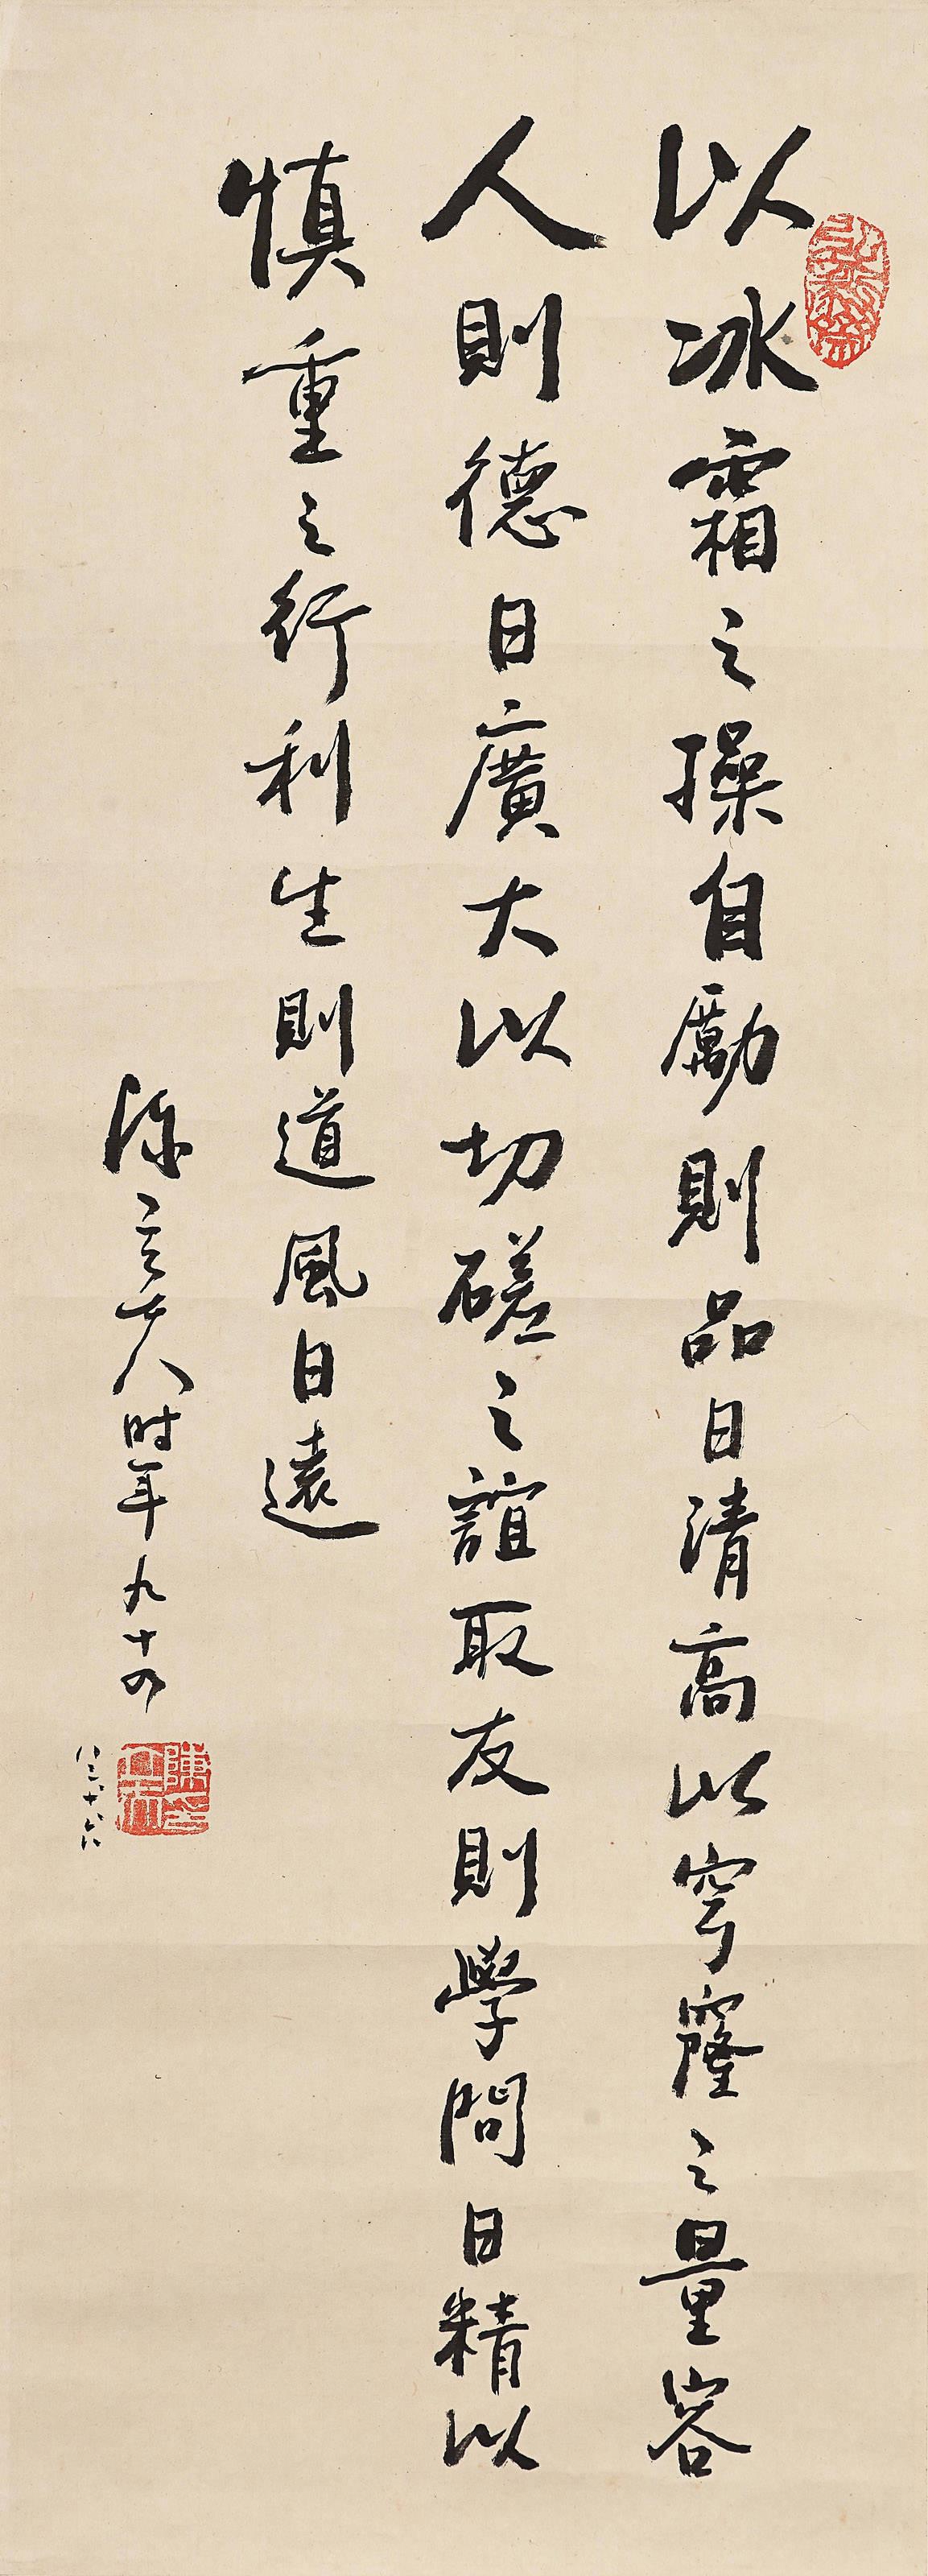 以冰霜之操自勵則品日清高以穹窿之量容
人則德日廣大以切磋之誼取友則學問日精以
慎重之行利生則道風日遠
陳立夫时年九十四